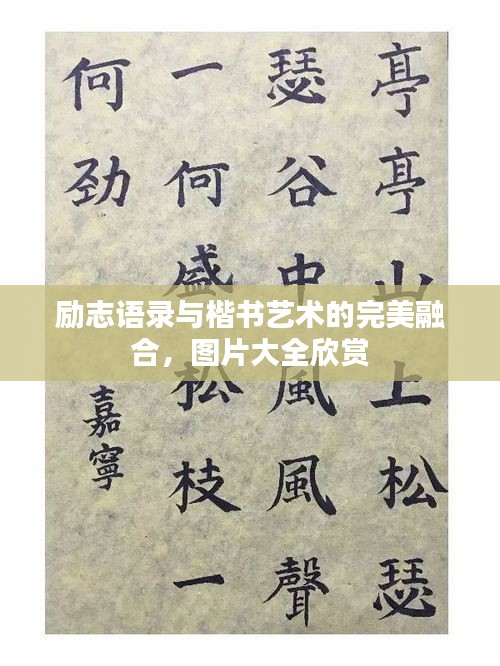 亭亭山上松瑟
瑟谷中風風聲
一何盛松枝一
何劲
嘉寧
励志语录与楷书艺术的完美融
合，图片大全欣赏